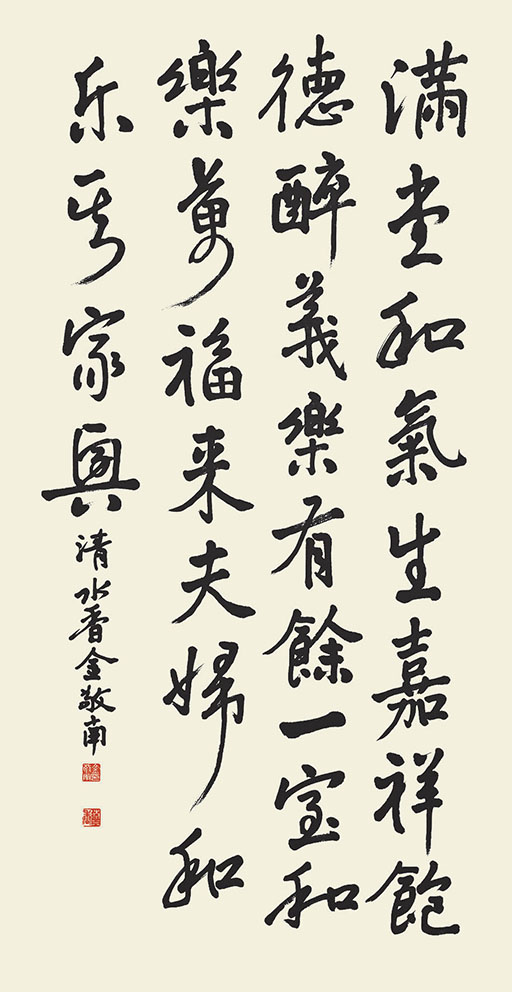 滿堂和氣生嘉祥飽
德醉義樂有餘一室和
樂萬福来夫婦和
乐其家興
清水香金敬南